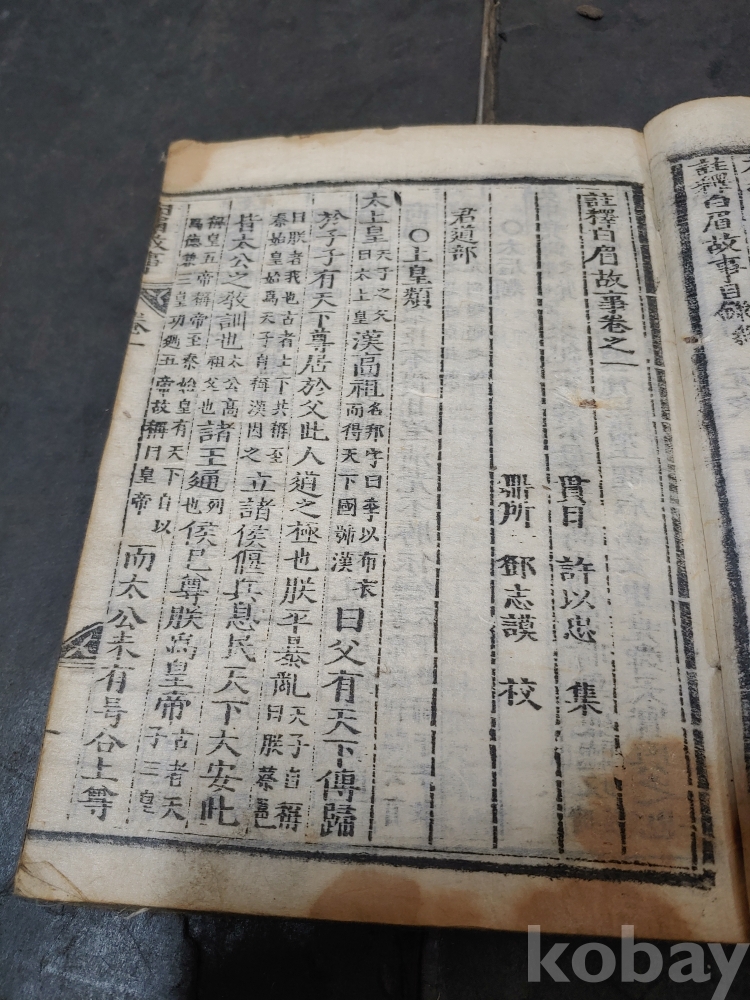 註釋白眉故事目錄終
註釋白眉故事卷之一
貫日 許以忠 集
鼎所 鄧志謨 校
君道部
○上皇類
太上皇天子之父曰太上皇漢高祖名邦字曰季以布衣而得天下國號漢曰父有天下傳歸
於子子有天下尊居於父此人道之極也朕平暴亂天子自稱曰朕蔡邕曰朕者我也古者上下共稱至秦始皇始為天子自稱漢因之立諸侯偃兵息民天下大安此
皆太公之教訓也太公高祖父也諸王通列也侯已尊朕為皇帝古者天子三皇稱皇五帝稱帝至秦始皇有天下自以為德兼三皇功過五帝故稱曰皇帝而太公未有号今上尊
白眉故事
卷一
一
kobay